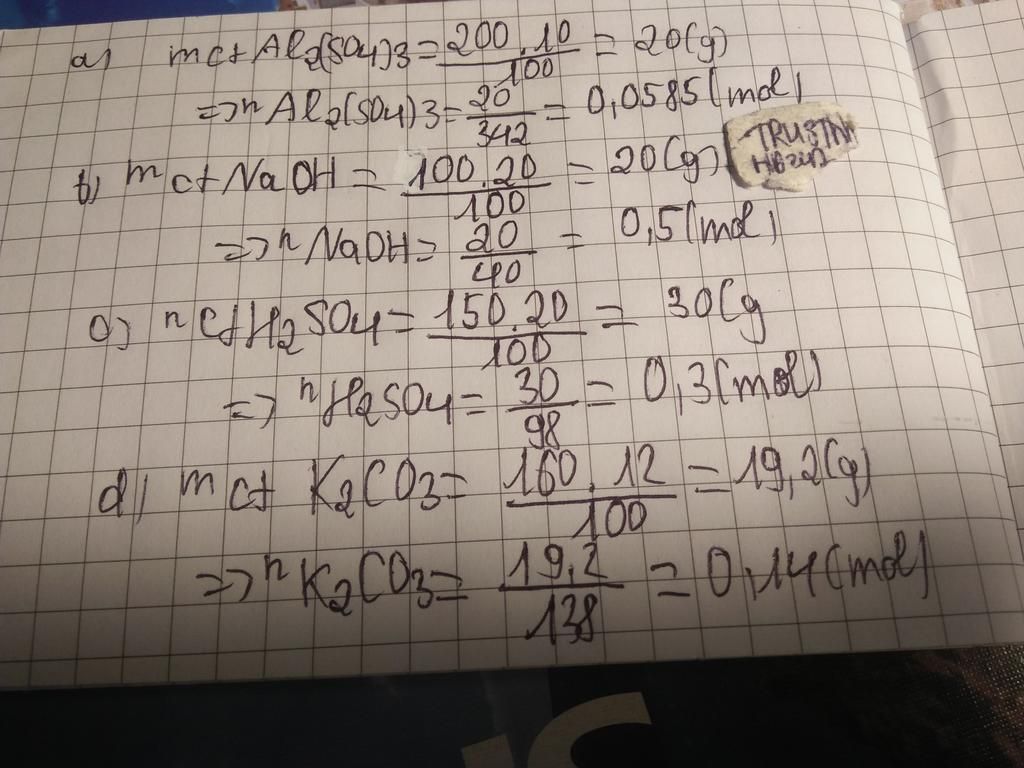 a) mct Al2(SO4)3 = 200.10/100 = 20(g)
=> nAl2(SO4)3 = 20/342 = 0,0585(mol)
b) mct NaOH = 100.20/100 = 20(g)
=> nNaOH = 20/40 = 0,5(mol)
c) nct H2SO4 = 150.20/100 = 30(g
=> nH2SO4 = 30/98 = 0,3(mol)
d) mct K2CO3 = 160.12/100 = 19,2(g)
=> nK2CO3 = 19,2/138 = 0,14(mol)